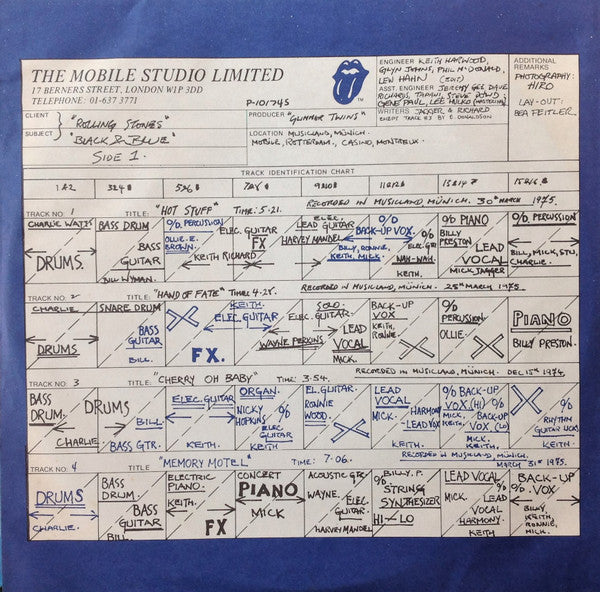 THE MOBILE STUDIO LIMITED
17 BERNERS STREET, LONDON W1P 3DD
TELEPHONE: 01-637 3771
P-101745
TM
ENGINEER KEITH HARWOOD,
GLYN JOHNS, PHIL McDONALD,
LEW HAHN (EDIT)
ASST. ENGINEER JEREMY GEE, DAVE
RICHARDS, TAPANI, STEVE DOWD;
GENE PAUL, LEE HULKO (MASTERING)
WRITERS JAGGER & RICHARD
EXCEPT TRACK #3 BY E. DONALDSON
ADDITIONAL
REMARKS
PHOTOGRAPHY:
HIRO
LAY-OUT:
BEA FEITLER
CLIENT "ROLLING STONES"
SUBJECT "BLACK & BLUE"
SIDE 1.
PRODUCER "GLIMMER TWINS"
LOCATION MUSICLAND, MUNICH.
MOBILE, ROTTERDAM, CASINO, MONTREUX.
TRACK IDENTIFICATION CHART
1 & 2 3 & 4 5 & 6 7 & 8 9 & 10 11 & 12 13 & 14 15 & 16
RECORDED IN MUSICLAND, MÜNICH. 30th MARCH 1975.
TRACK NO. 1 TITLE: "HOT STUFF" TIME: 5-21.
CHARLIE WATTS
DRUMS.
BASS DRUM
BASS
GUITAR
BILL WYMAN.
% PERCUSSION
OLLIE. E.
BROWN.
ELEC. GUITAR
FX
KEITH RICHARD
ELEC.
LEAD GUITAR
HARVEY MANDEL
O/D
BACK-UP VOX.
BILL, RONNIE,
KEITH, MICK
% ELEC. GTR
WAH-WAH
KEITH.
% PIANO
BILLY
PRESTON
LEAD
VOCAL
MICK JAGGER
% PERCUSSION
BILL, MICK, STU,
CHARLIE.
RECORDED IN MUSICLAND, MÜNICH. 25th MARCH 1975
TRACK NO. 2 TITLE: "HAND OF FATE" TIME: 4-28.
CHARLIE
DRUMS
SNARE DRUM
BASS
GUITAR
BILL.
KEITH.
ELEC. GUITAR
FX.
SOLO.
ELEC. GUITAR.
WAYNE PERKINS
LEAD
VOCAL
MICK.
BACK-UP
VOX
KEITH,
RONNIE
%
PERCUSSION
OLLIE.
PIANO
BILLY PRESTON.
RECORDED IN MUSICLAND, MÜNICH. DEC. 15th 1974.
TRACK NO. 3 TITLE: "CHERRY OH BABY" TIME: 3-54.
BASS
DRUM.
DRUMS
CHARLIE
BILL
BASS GTR.
ELEC. GUITAR
KEITH.
ORGAN.
NICKY
HOPKINS
%
ELEC
GUITAR
KEITH
EL. GUITAR.
RONNIE
WOOD.
LEAD
VOCAL
MICK.
HARMONY
LEAD VOX
KEITH.
% BACK-UP
VOX. (HI) %
MICK, BACK-UP
KEITH. VOX. (LO)
MICK,
KEITH.
%
RHYTHM
GUITAR LICKS
KEITH.
RECORDED IN MUSICLAND, MÜNICH.
MARCH 31st 1975.
TRACK NO. 4 TITLE "MEMORY MOTEL" TIME: 7-06.
DRUMS
CHARLIE.
BASS
DRUM.
BASS
GUITAR
BILL
ELECTRIC
PIANO.
KEITH.
FX
CONCERT
PIANO
MICK
ACOUSTIC GTR.
WAYNE.
ELEC.
GUITAR.
HARVEY MANDEL
BILLY. P.
%
STRING
SYNTHESIZER
HI-LO
LEAD VOCAL
MICK.
%
LEAD
VOCAL
HARMONY.
KEITH
BACK-UP
% VOX.
BILLY,
KEITH,
RONNIE,
MICK.